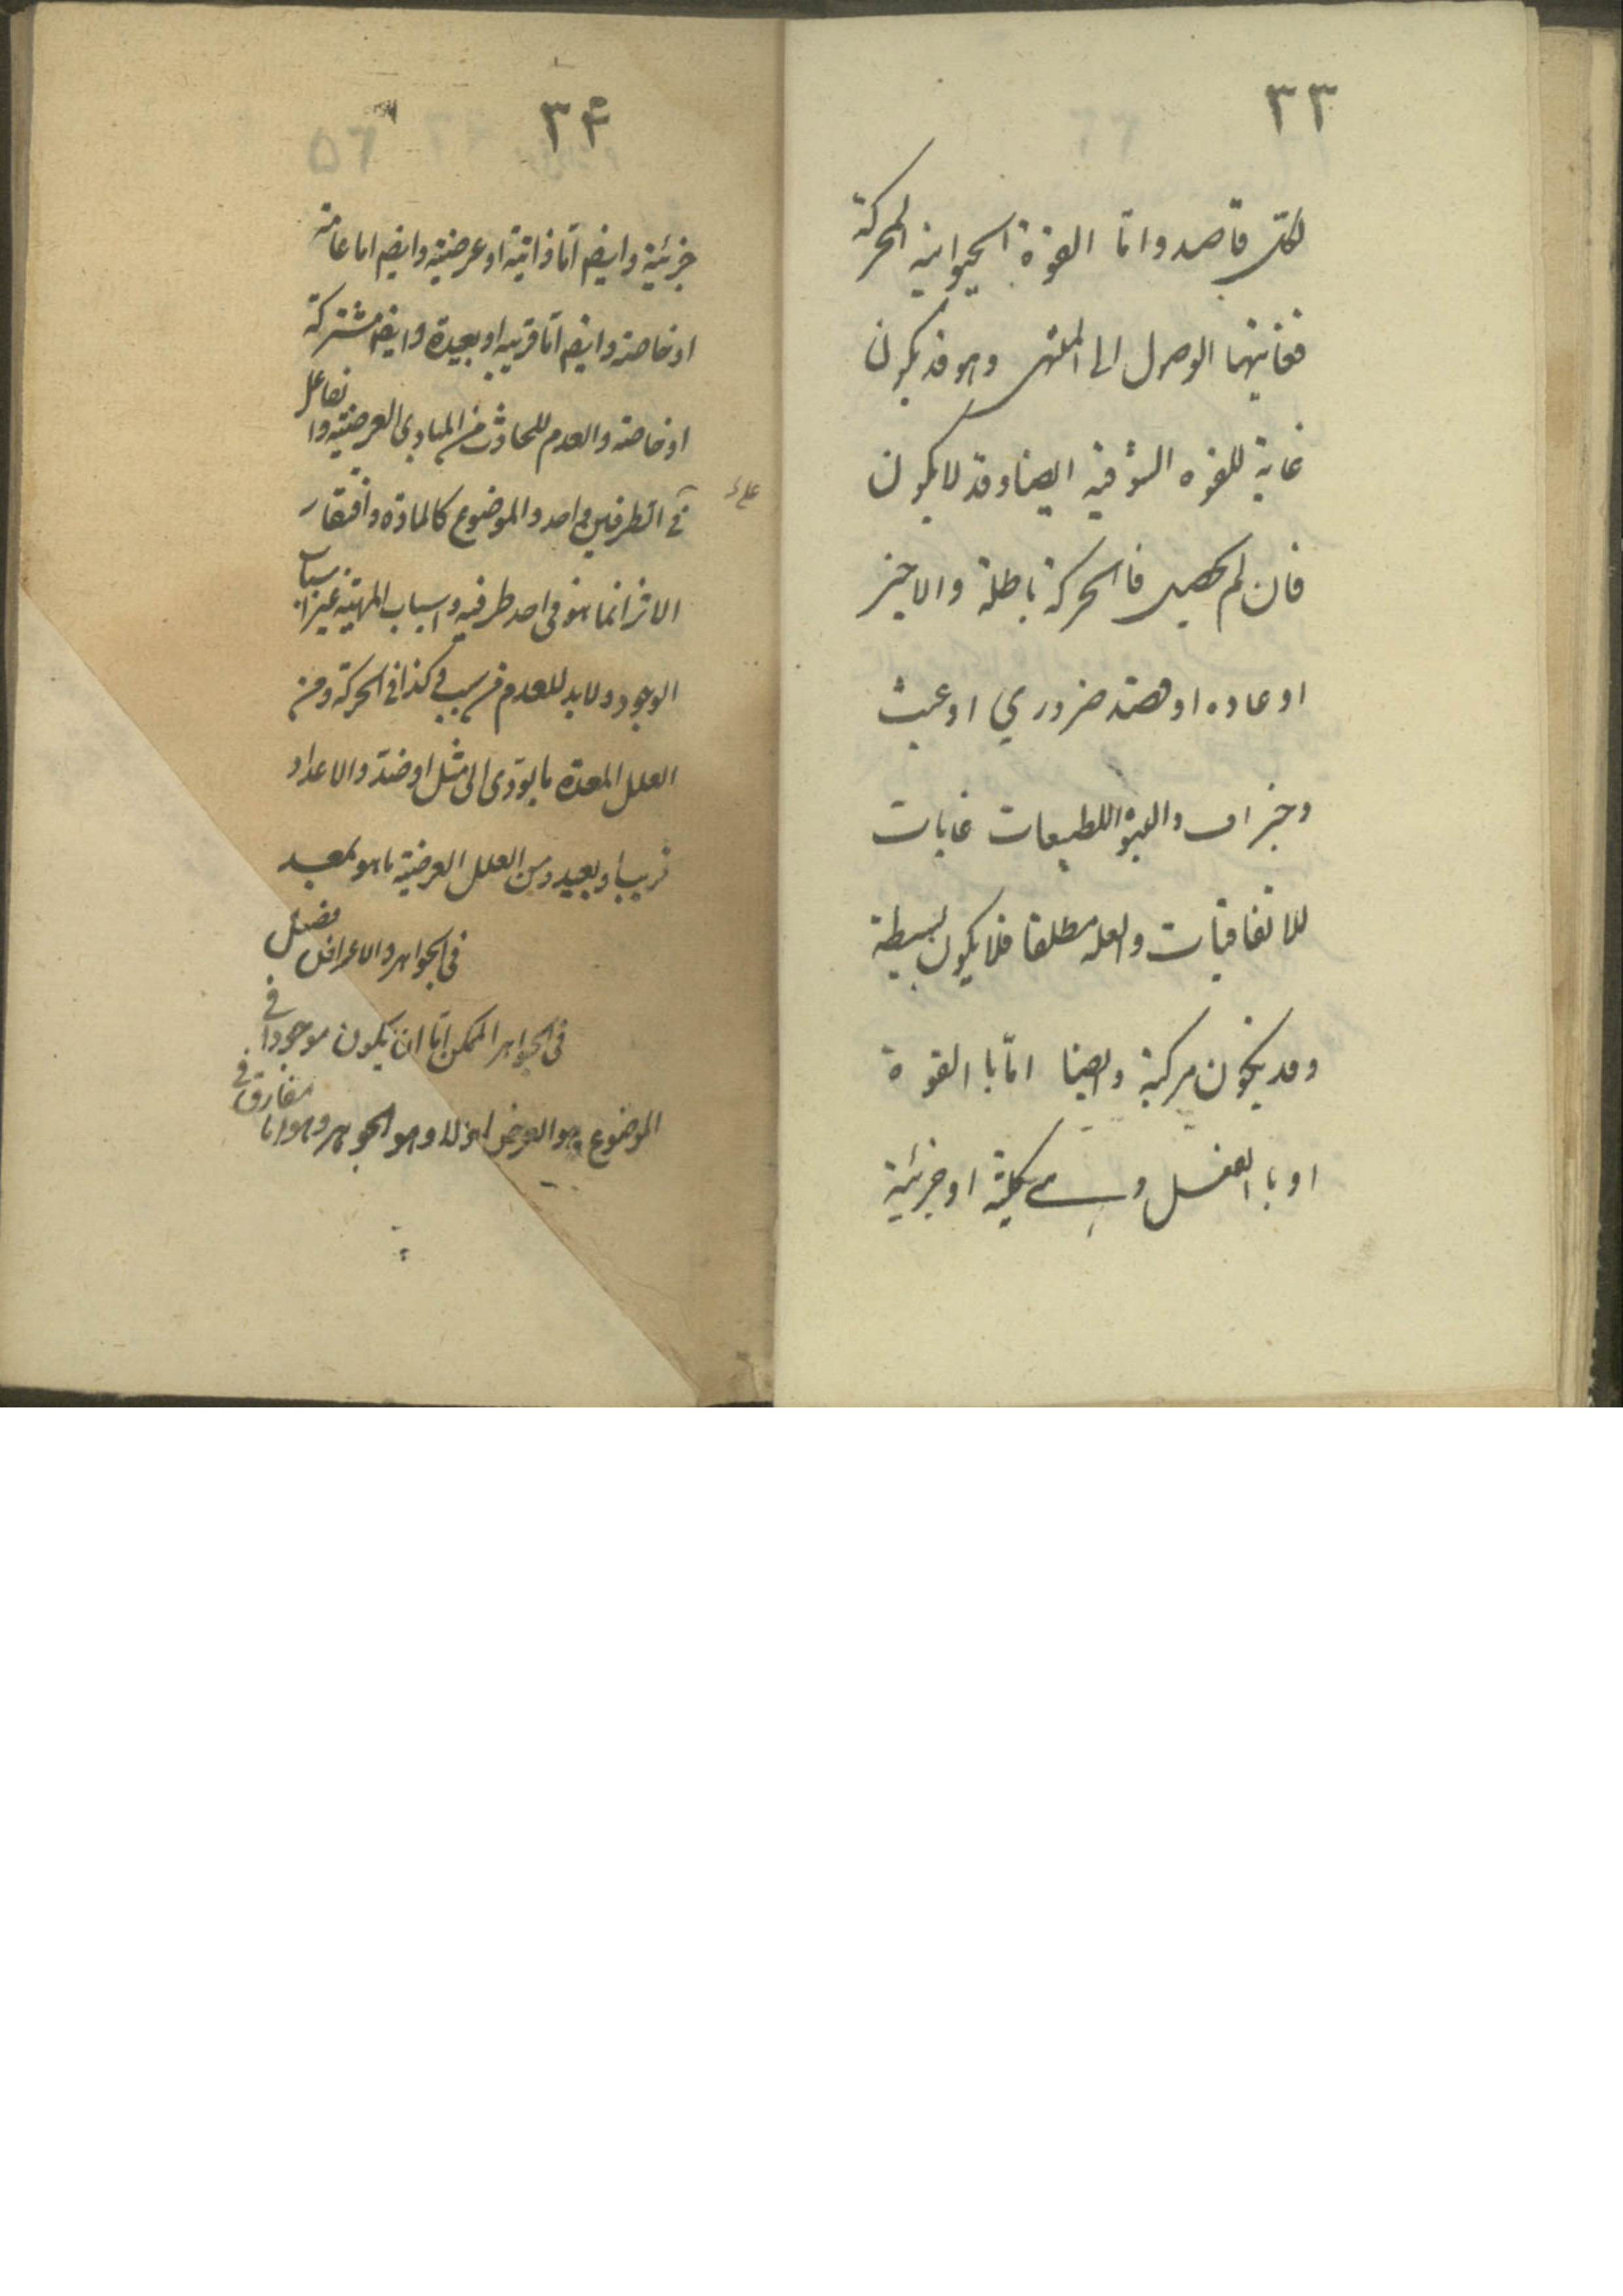 ٣٣
لكل قاصد واما القوة الحيوانية المحركة
فغايتها الوصول الى المنتهى وهو قد يكون
غاية للقوه الشوقية ايضا وقد لا يكون
فان لم يحصل فالحركة باطلة والا خير
او عاده او قصد ضروري او عبث
وجزاف واثبتوا للطبيعات غايات
للاتفاقيات والعلة مطلقا قد يكون بسيطة
وقد يكون مركبة وايضا اما با القوة
او با الفعل و كلية او جزئية
٣٤
جزئية وايضم اما ذاتية او عرضية وايضم اما عامة
او خاصة وايضم اما قريبه او بعيدة وايضم مشتركة
او خاصة والعدم للحادث من المبادى العرضية والفاعل
في الطرفين واحد والموضوع كالمادة وافتقار
الاثر انما هو فى احد طرفيه واسباب المهية غير اسباب
الوجود ولا بد للعدم من سبب و كذا فى الحركة ومن
العلل المعدة ما يؤدى الى مثل او ضد والاعداد
قريب او بعيد ومن العلل العرضية ما هو معد
فى الجواهر والاعراض فصل
فى الجواهر الممكن اما ان يكون موجودا فى
الموضوع وهو العرض او لا وهو الجوهر وهو اما مفارق فى